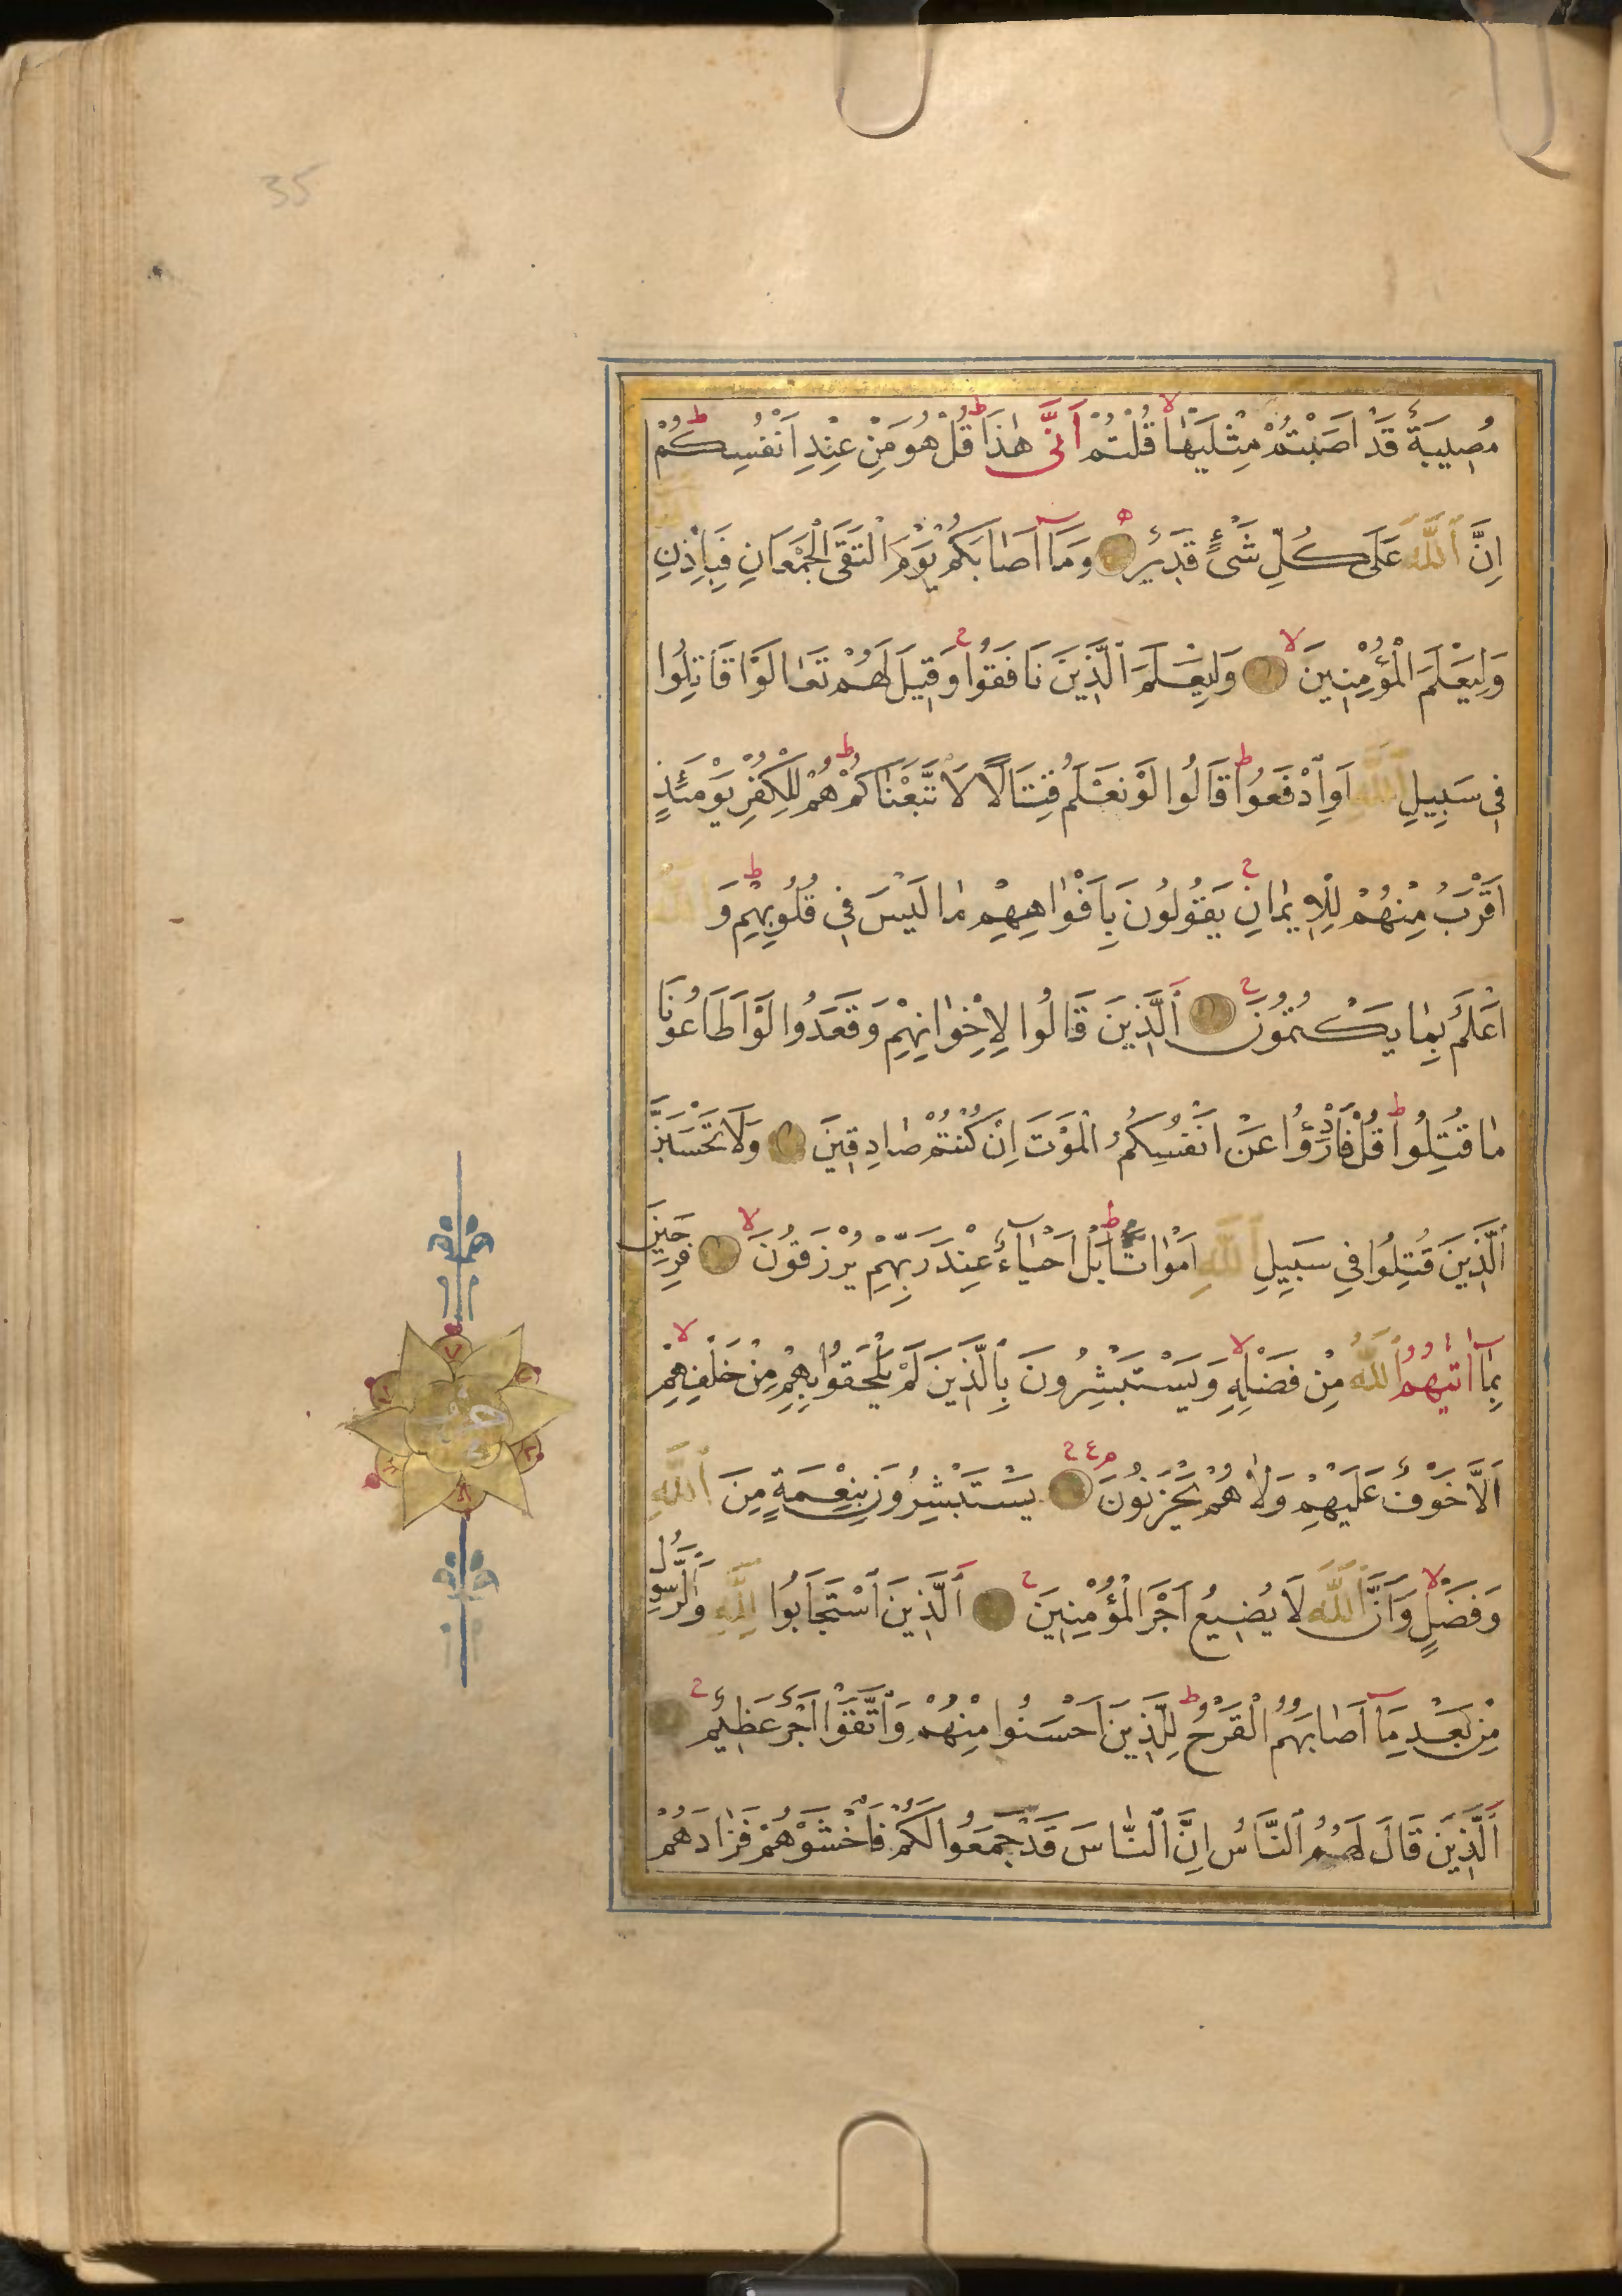 35
مُصِيبَةٌ قَدْ اَصَبْتُمْ مِثْلَيْهَا قُلْتُمْ اَنّٰى هٰذَا قُلْ هُوَ مِنْ عِنْدِ اَنْفُسِكُمْ
اِنَّ ٱللّٰهَ عَلٰى كُلِّ شَىْءٍ قَدِيرٌ وَمَا اَصَابَكُمْ يَوْمَ الْتَقَى الْجَمْعَانِ فَبِاِذْنِ ٱللّٰهِ
وَلِيَعْلَمَ الْمُؤْمِنِينَ وَلِيَعْلَمَ الَّذِينَ نَافَقُوا وَقِيلَ لَهُمْ تَعَالَوْا قَاتِلُوا
فِى سَبِيلِ ٱللّٰهِ اَوِ ادْفَعُوا قَالُوا لَوْ نَعْلَمُ قِتَالًا لَاتَّبَعْنَاكُمْ هُمْ لِلْكُفْرِ يَوْمَئِذٍ
اَقْرَبُ مِنْهُمْ لِلْاِيمَانِ يَقُولُونَ بِاَفْوَاهِهِمْ مَا لَيْسَ فِى قُلُوبِهِمْ وَ ٱللّٰهُ
اَعْلَمُ بِمَا يَكْتُمُونَ اَلَّذِينَ قَالُوا لِاِخْوَانِهِمْ وَقَعَدُوا لَوْ اَطَاعُونَا
مَا قُتِلُوا قُلْ فَادْرَؤُا عَنْ اَنْفُسِكُمُ الْمَوْتَ اِنْ كُنْتُمْ صَادِقِينَ وَلَا تَحْسَبَنَّ
الَّذِينَ قُتِلُوا فِى سَبِيلِ ٱللّٰهِ اَمْوَاتًا بَلْ اَحْيَاءٌ عِنْدَ رَبِّهِمْ يُرْزَقُونَ فَرِحِينَ
بِمَا اٰتٰيهُمُ ٱللّٰهُ مِنْ فَضْلِهِ وَيَسْتَبْشِرُونَ بِالَّذِينَ لَمْ يَلْحَقُوا بِهِمْ مِنْ خَلْفِهِمْ
اَلَّا خَوْفٌ عَلَيْهِمْ وَلَا هُمْ يَحْزَنُونَ يَسْتَبْشِرُونَ بِنِعْمَةٍ مِنَ ٱللّٰهِ
وَفَضْلٍ وَاَنَّ ٱللّٰهَ لَا يُضِيعُ اَجْرَ الْمُؤْمِنِينَ اَلَّذِينَ اسْتَجَابُوا لِلّٰهِ وَالرَّسُولِ
مِنْ بَعْدِ مَا اَصَابَهُمُ الْقَرْحُ لِلَّذِينَ اَحْسَنُوا مِنْهُمْ وَاتَّقَوْا اَجْرٌ عَظِيمٌ
اَلَّذِينَ قَالَ لَهُمُ النَّاسُ اِنَّ النَّاسَ قَدْ جَمَعُوا لَكُمْ فَاخْشَوْهُمْ فَزَادَهُمْ